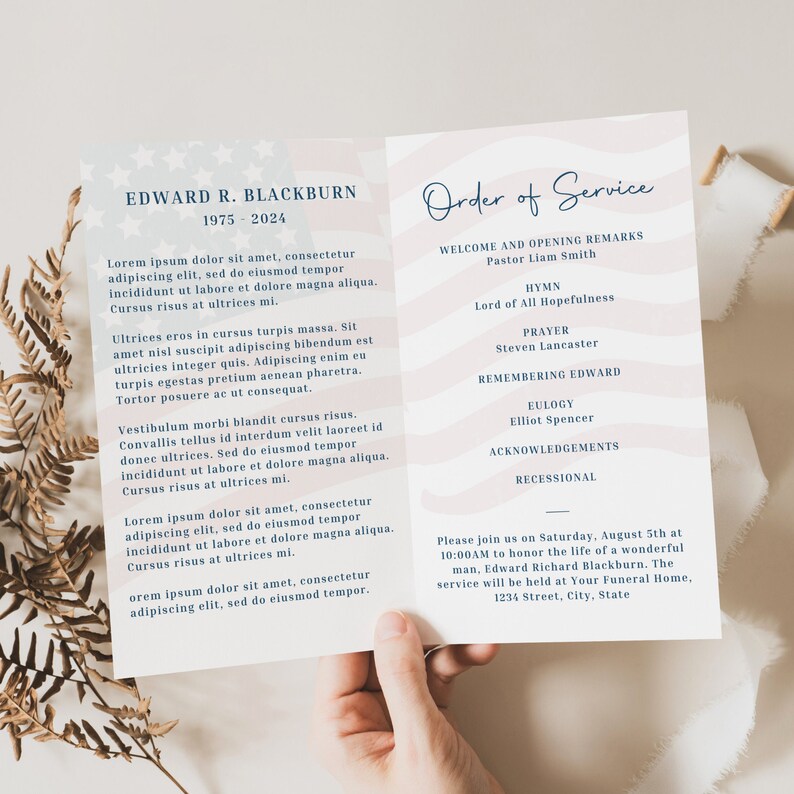 EDWARD R. BLACKBURN
1975 - 2024
Lorem ipsum dolor sit amet, consectetur
adipiscing elit, sed do eiusmod tempor
incididunt ut labore et dolore magna aliqua.
Cursus risus at ultrices mi.
Ultrices eros in cursus turpis massa. Sit
amet nisl suscipit adipiscing bibendum est
ultricies integer quis. Adipiscing enim eu
turpis egestas pretium aenean pharetra.
Tortor posuere ac ut consequat.
Vestibulum morbi blandit cursus risus.
Convallis tellus id interdum velit laoreet id
donec ultrices. Sed do eiusmod tempor
incididunt ut labore et dolore magna aliqua.
Cursus risus at ultrices mi.
Lorem ipsum dolor sit amet, consectetur
adipiscing elit, sed do eiusmod tempor
incididunt ut labore et dolore magna aliqua.
Cursus risus at ultrices mi.
orem ipsum dolor sit amet, consectetur
adipiscing elit, sed do eiusmod tempor.
Order of Service
WELCOME AND OPENING REMARKS
Pastor Liam Smith
HYMN
Lord of All Hopefulness
PRAYER
Steven Lancaster
REMEMBERING EDWARD
EULOGY
Elliot Spencer
ACKNOWLEDGEMENTS
RECESSIONAL
Please join us on Saturday, August 5th at
10:00AM to honor the life of a wonderful
man, Edward Richard Blackburn. The
service will be held at Your Funeral Home,
1234 Street, City, State